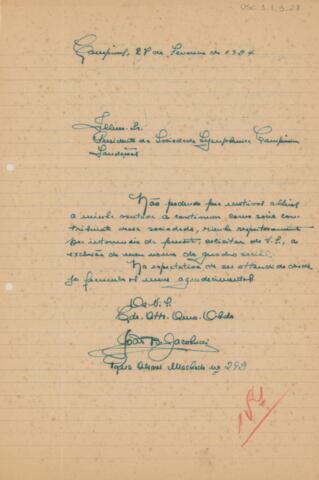 OSC 3.1.9.28
Campinas, 28 de Fevereiro de 1934
Illmo. Sr.
Presidente da Sociedade Symphonica Campineira
Saudações
Não podendo por motivos alheios
a minha vontade continuar como socio con-
tribuinte dessa sociedade, venho respeitosamente
por intermedio da presente, solicitar de V.S., a
exclusão do meu nome do quadro social.
Na expectativa de ser attendido desde
já formulo os meus agradecimentos
De V.S.
Cdo. Atto. Amo. Obdo
João B. Jacobucci
Alvares Machado nº 292